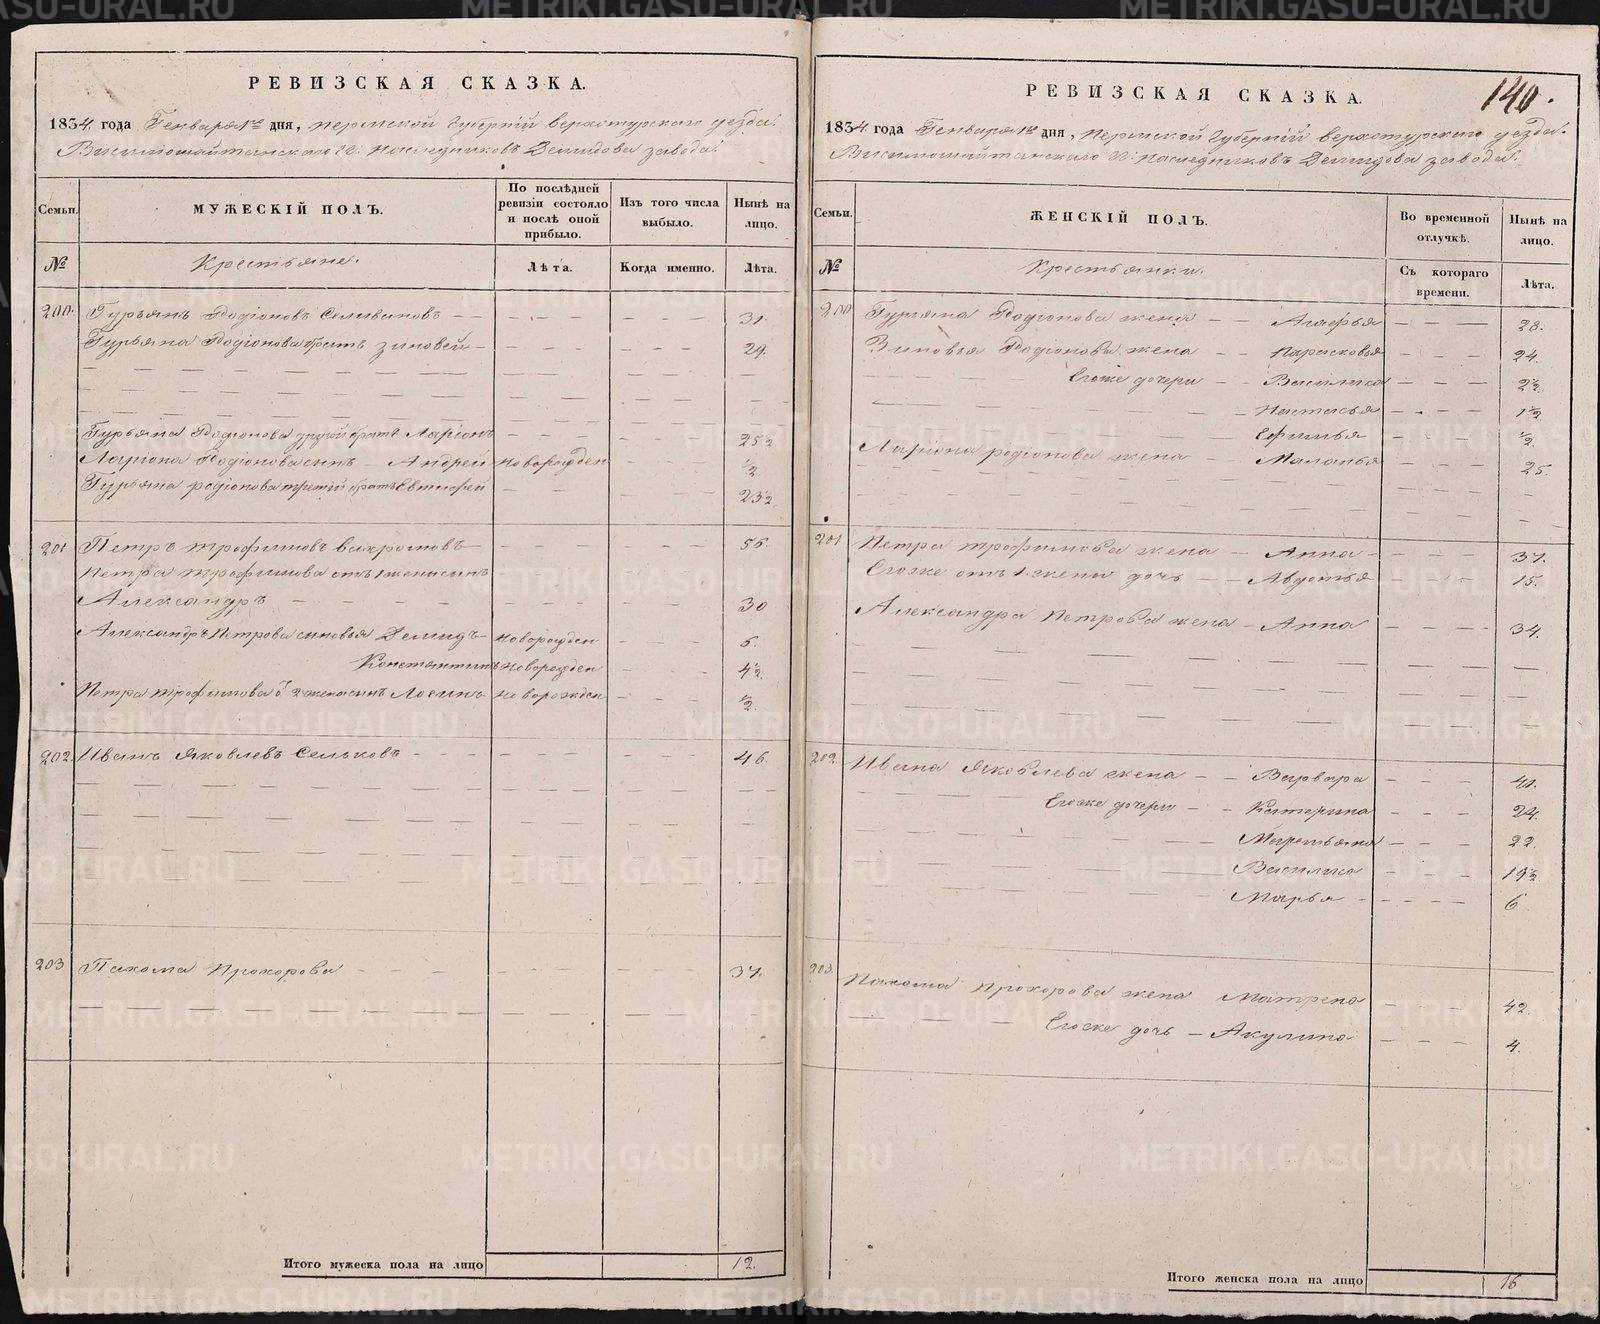 РЕВИЗСКАЯ СКАЗКА.
1834. года Генваря 1го дня, Пермской Губерніи верхотурскаго уезда.
Висимошайтанскаго Н: Наследниковъ Демидова завода.
Семьи.
МУЖЕСКІЙ ПОЛЪ.
По послѣдней ревизіи состояло и послѣ оной прибыло.
Изъ того числа выбыло.
Нынѣ на лицо.
№
Крестьяне.
Лѣта.
Когда именно.
Лѣта.
200. Гурьянъ Родіоновъ Селивановъ 31.
Гурьяна Родіонова братъ Зиновей 29.
Гурьяна Родіонова другой братъ Ларіонъ 25½
Ларіона Родіонова сынъ Андрей новорожден ½
Гурьяна родіонова третій братъ Евтифей 23½
201 Петръ трофимовъ вахромовъ 56.
Петра трофимова отъ 1 жены сынъ
Александръ 30
Александръ Петрова сыновья Демидъ новорожден 6.
Константинъ новорожден 4½
Петра трофимова 2 жены сынъ новорожден ½
202. Иванъ Яковлевъ Сельковъ 46.
203 Пахома Прохорова 37.
Итого мужеска пола на лицо 12.
РЕВИЗСКАЯ СКАЗКА.
140.
1834 года Генваря 1го дня, Пермской Губерніи верхотурскаго уезда.
Висимошайтанскаго Н: Наследниковъ Демидова завода.
Семьи.
ЖЕНСКІЙ ПОЛЪ.
Во временной отлучкѣ.
Нынѣ на лицо.
№
Крестьянки.
Съ котораго времени.
Лѣта.
200 Гурьяна Родіонова жена Агафья 28.
Зиновья Родіонова жена Парасковья 24.
Егоже дочери Василиса 2½
Настасья 1½
Ефимья ½
Ларіона родіонова жена Маланья 25.
201 Петра трофимова жена Анна 37.
Егоже отъ 1. жены дочь Авдотья 15.
Александра Петрова жена Анна 34.
202. Ивана Яковлева жена Варвара 41.
Егоже дочери Катерина 24.
Маремьяна 22.
Василиса 19½
Марья 6
203. Пахома Прохорова жена Матрена 42.
Егоже дочь Акулина 4.
Итого женска пола на лицо 16
METRIKI.GASO-URAL.RU